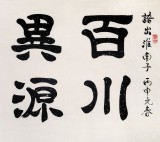 語出淮南子 丙申元春
百川
異源